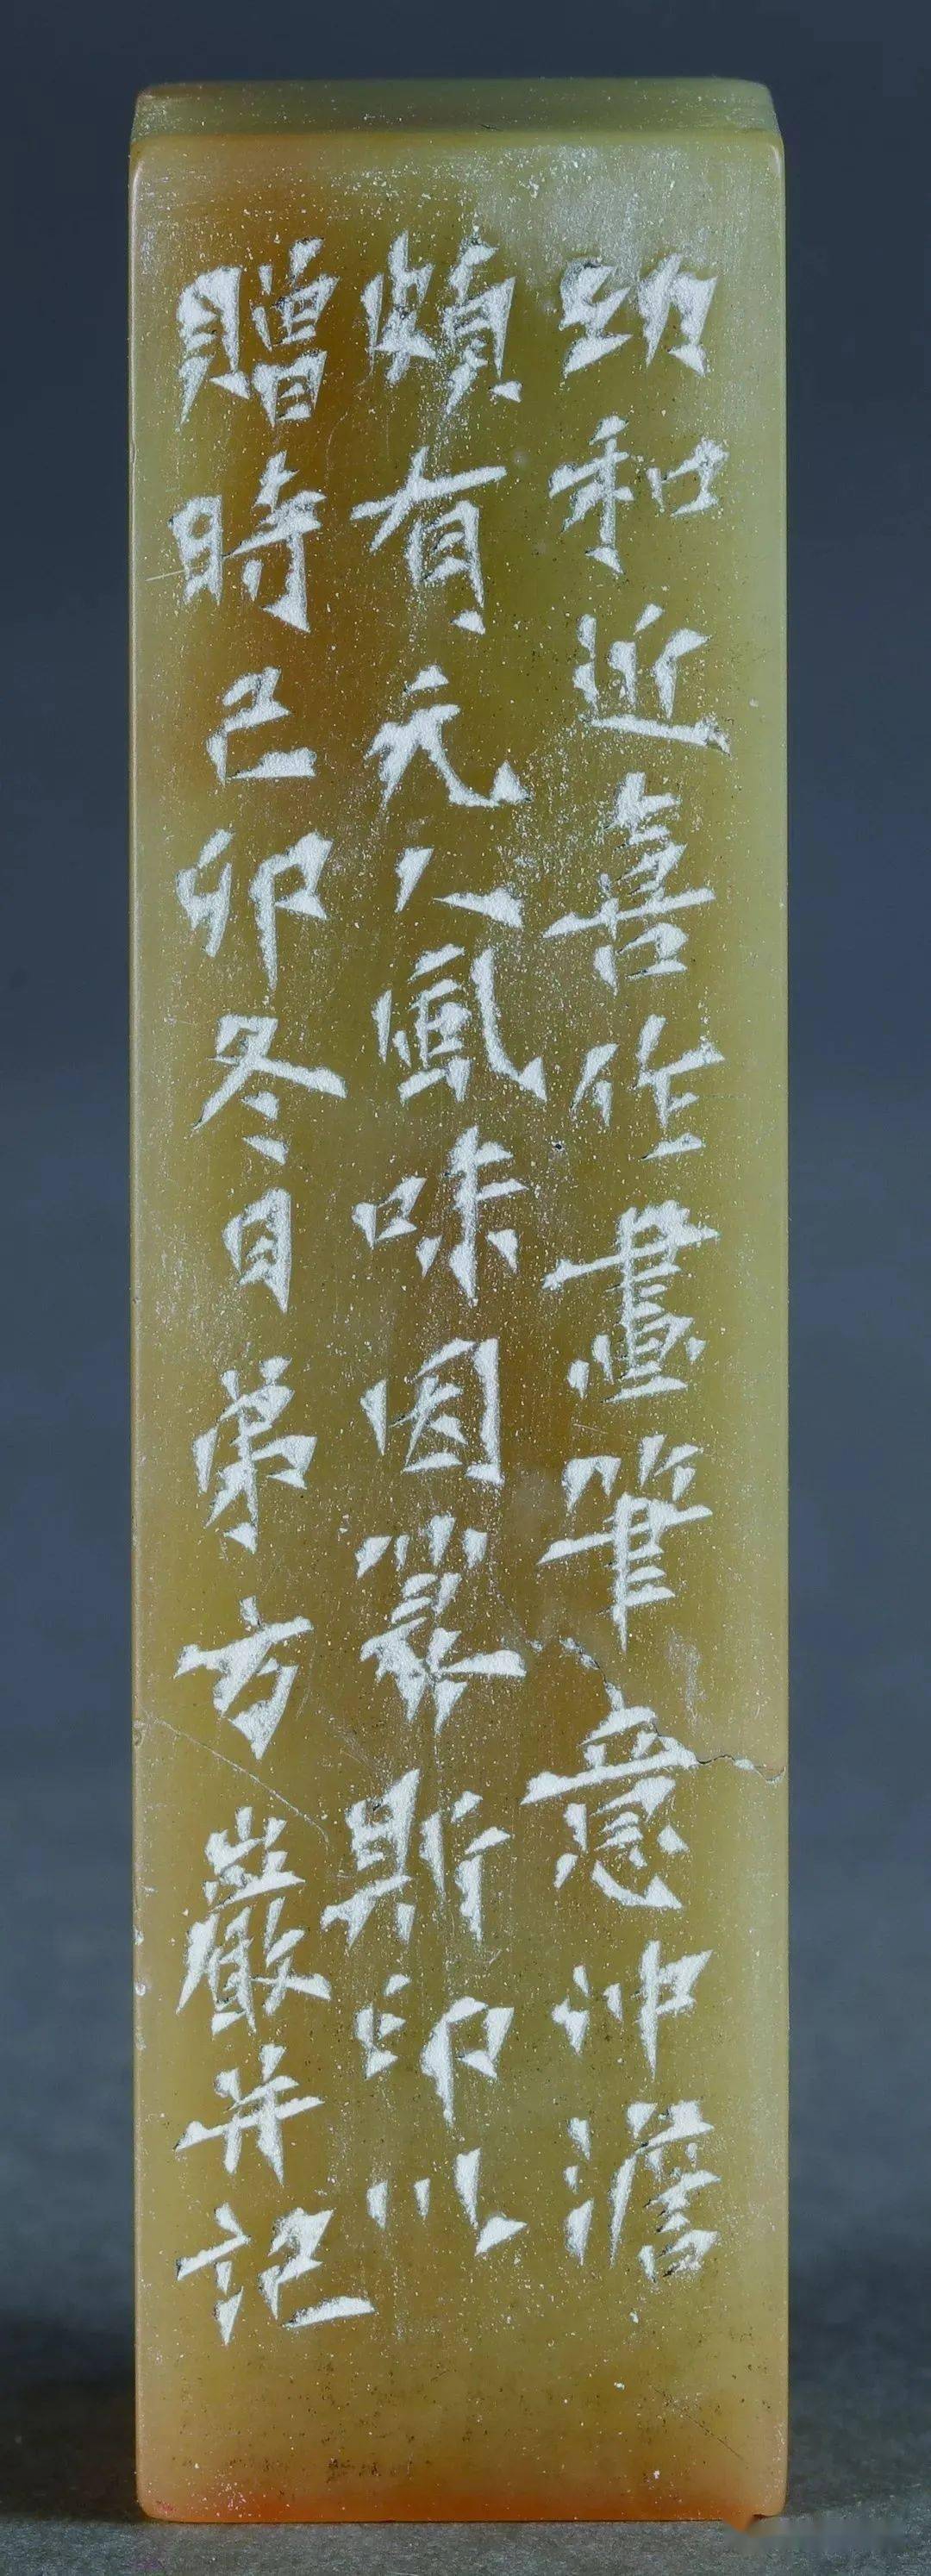 幼和近喜作畫筆意沖澹
頗有元人風味因篆斯印以
贈時己卯冬日弟方巖并記